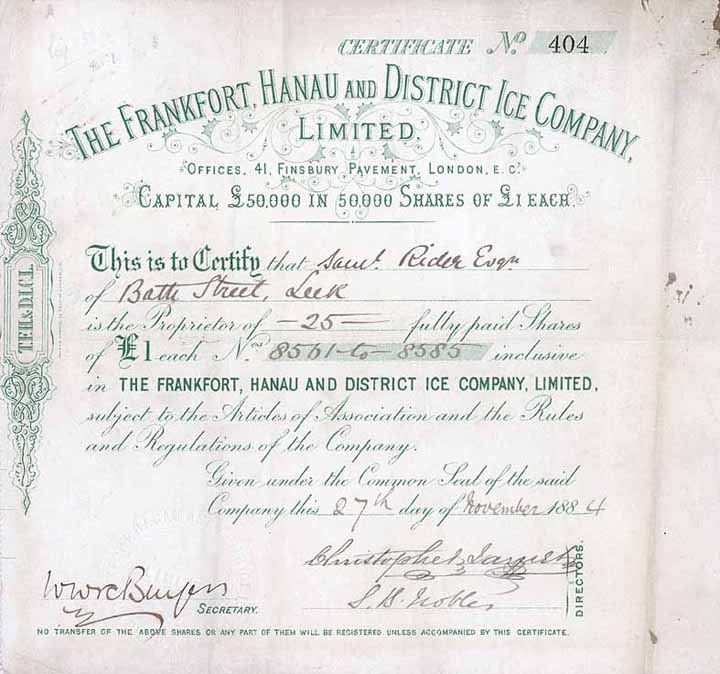 CERTIFICATE No. 404
THE FRANKFORT, HANAU AND DISTRICT ICE COMPANY,
LIMITED.
OFFICES, 41, FINSBURY PAVEMENT, LONDON, E.C.
CAPITAL £50,000 IN 50,000 SHARES OF £1 EACH.
This is to Certify that Saml. Rider Esqr
of Bath Street, Leek
is the Proprietor of —25— fully paid Shares
of £1 each Nos 8561 to 8585 inclusive
in THE FRANKFORT, HANAU AND DISTRICT ICE COMPANY, LIMITED,
subject to the Articles of Association and the Rules
and Regulations of the Company.
Given under the Common Seal of the said
Company this 27th day of November 1884
Christopher
S. B. Nobles
DIRECTORS.
SECRETARY.
NO TRANSFER OF THE ABOVE SHARES OR ANY PART OF THEM WILL BE REGISTERED UNLESS ACCOMPANIED BY THIS CERTIFICATE.
T.F.H.& D.I.C.L.